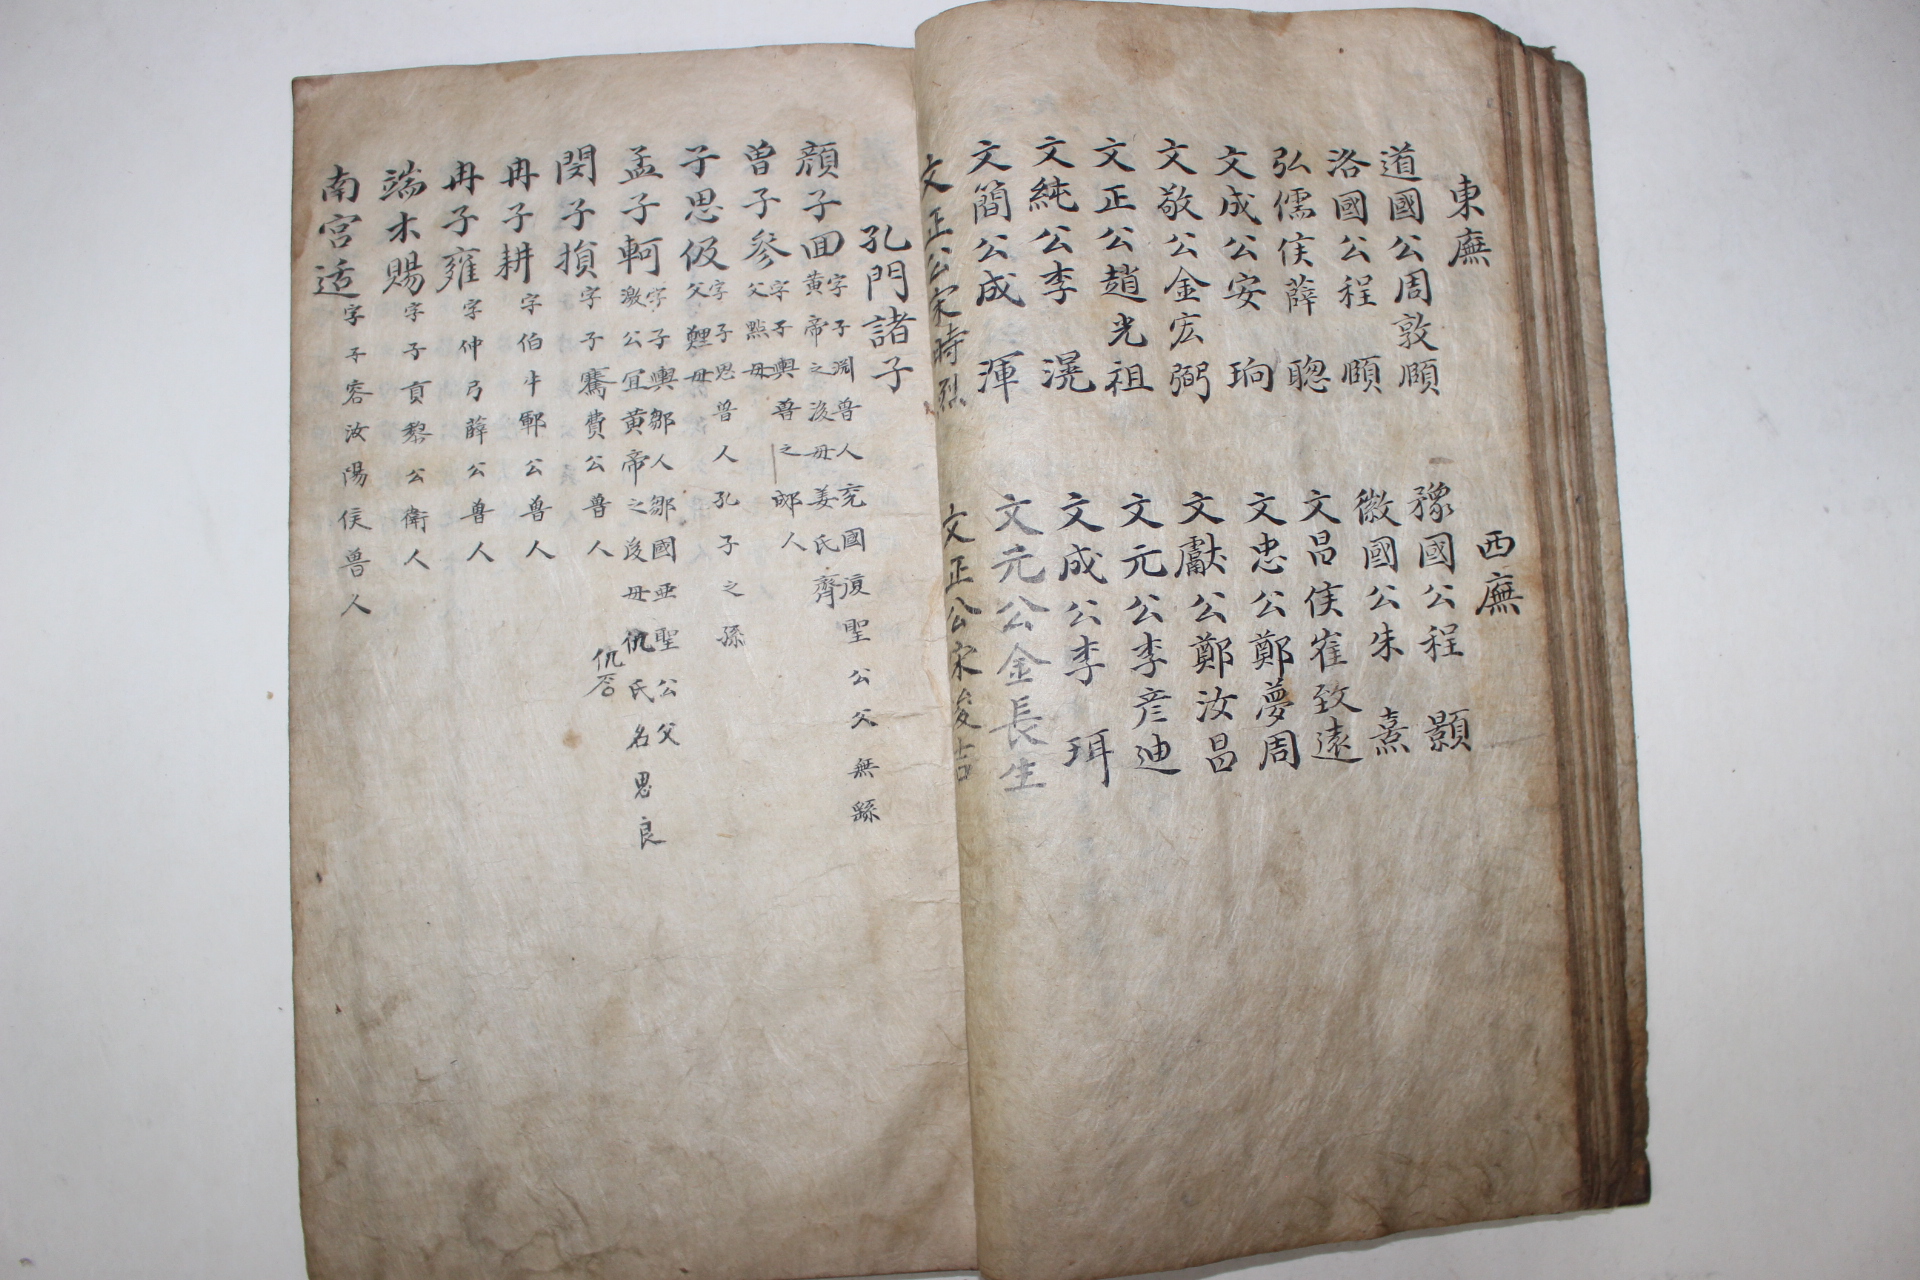 東廡
道國公周敦頤
洛國公程頤
弘儒侯薛聰
文成公安珦
文敬公金宏弼
文正公趙光祖
文純公李滉
文簡公成渾
文正公宋時烈
西廡
豫國公程顥
徽國公朱熹
文昌侯崔致遠
文忠公鄭夢周
文獻公鄭汝昌
文元公李彦迪
文成公李珥
文元公金長生
文正公宋浚吉
孔門諸子
顔子回
字子淵魯人兗國復聖公父無繇
黄帝之後母姜氏齊
曾子參
字子輿魯之郕人
父點母
子思伋
字子思魯人孔子之孫
父鯉母
孟子軻
字子輿鄒人鄒國亞聖公父
激公冝黄帝之後母仉氏名思良
仉
閔子損字子騫費公魯人
冉子耕字伯牛鄆公魯人
冉子雍字仲弓薛公魯人
端木賜字子貢黎公衛人
南宮适字子容汝陽侯魯人